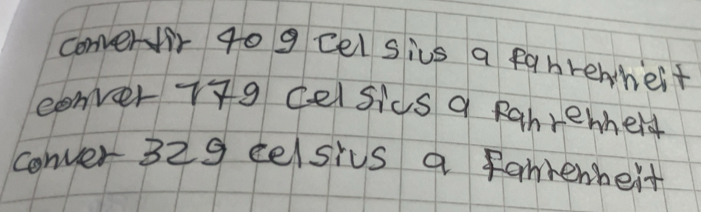 convertir 40 g celsius a fahrenheit
conver 77 g celsius a Fahrenheit
conver 32 g celsius a Fahrenheit